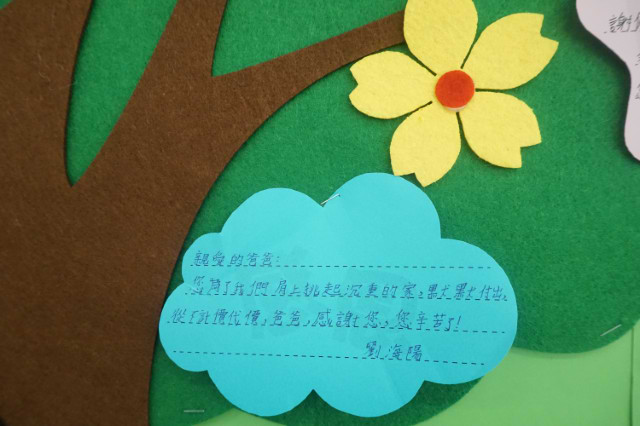 親愛的爸爸:
您為了我們肩上挑起沉重的家,默默付出,
從不計價代價,爸爸,感謝您,您辛苦了!
劉海陽
謝